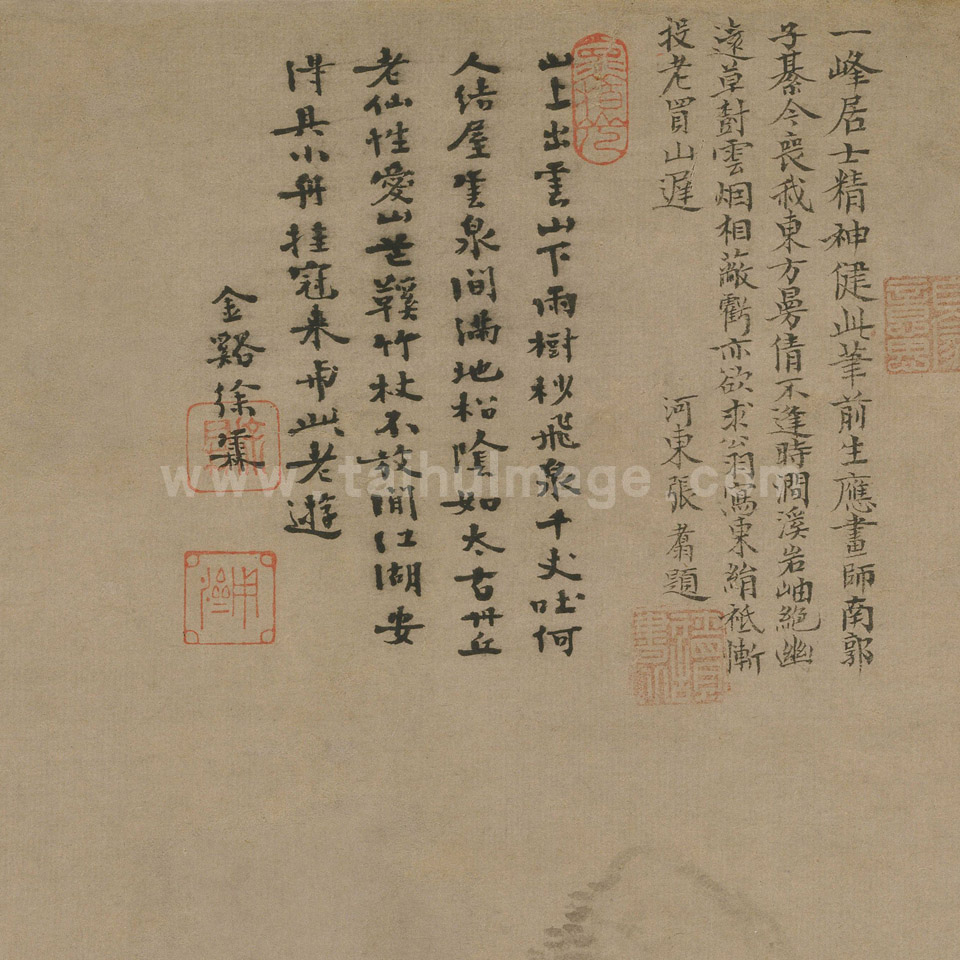 一峰居士精神健此筆前生應畫師南郭
子綦今喪我東方曼倩不逢時澗溪岩岫絕幽
遠草樹雲烟相蔽虧亦欲求翁寫東絹祗慚
投老買山遲
河東張翥題
山上出雲山下雨樹杪飛泉千丈吐何
人結屋雲泉間滿地松陰如太古丹丘
老仙性愛山芒鞵竹杖不放閒江湖安
得具小舟挂冠来与此老遊
金谿徐霖
www.taihuimage.com